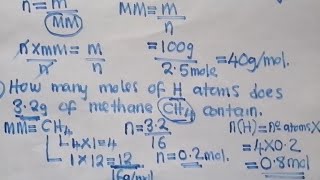 n = m
MM
MM = m
n
n × MM = m
n n
= 100g
2.5mole
= 40g/mol.
How many moles of H atoms does
3.2g of methane CH4 contain.
MM = CH4
4×1=4
1×12=12
16g/mol
n = 3.2
16
n = 0.2mol.
n(H) = nº atoms X
= 4X0.2
= 0.8mol